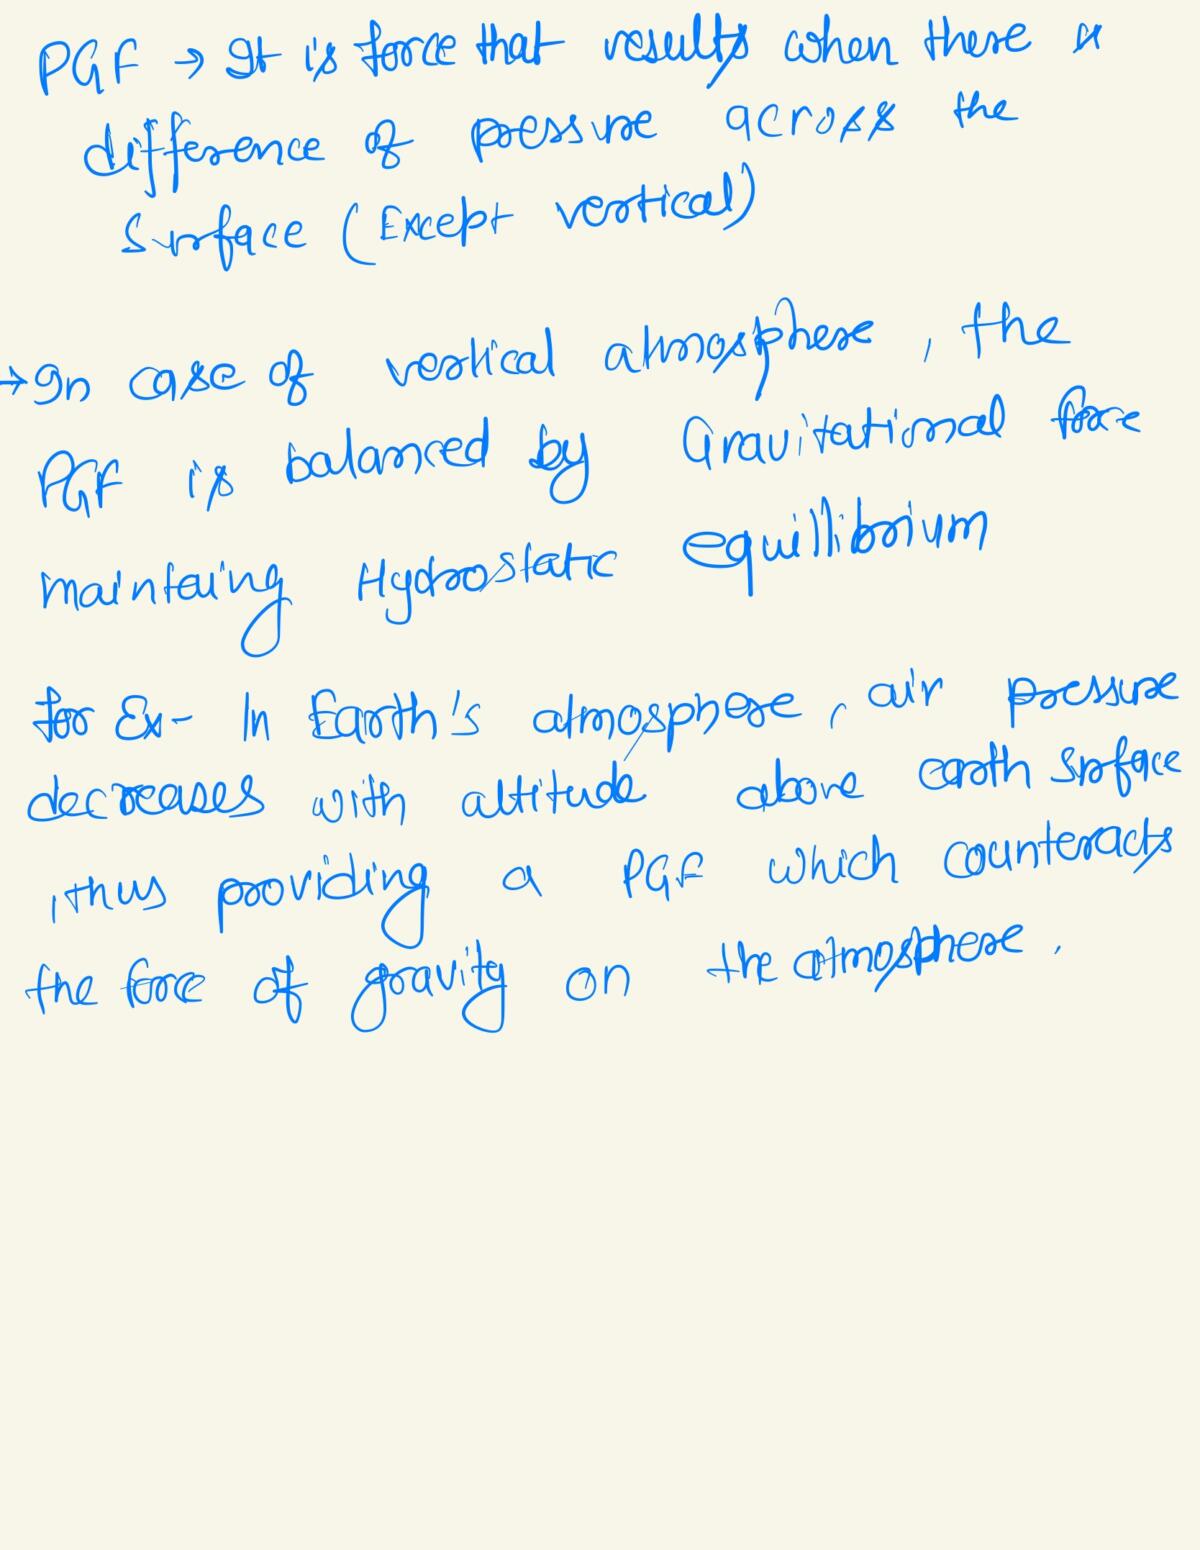 PGF → It is force that results when there is
difference of pressure across the
Surface (Except vertical)
→ In case of vertical atmosphere, the
PGF is balanced by Gravitational force
maintaing Hydrostatic equillibrium
for Ex- In Earth's atmosphere, air pressure
decreases with altitude above earth surface
, thus providing a PGF which counteracts
the force of gravity on the atmosphere.